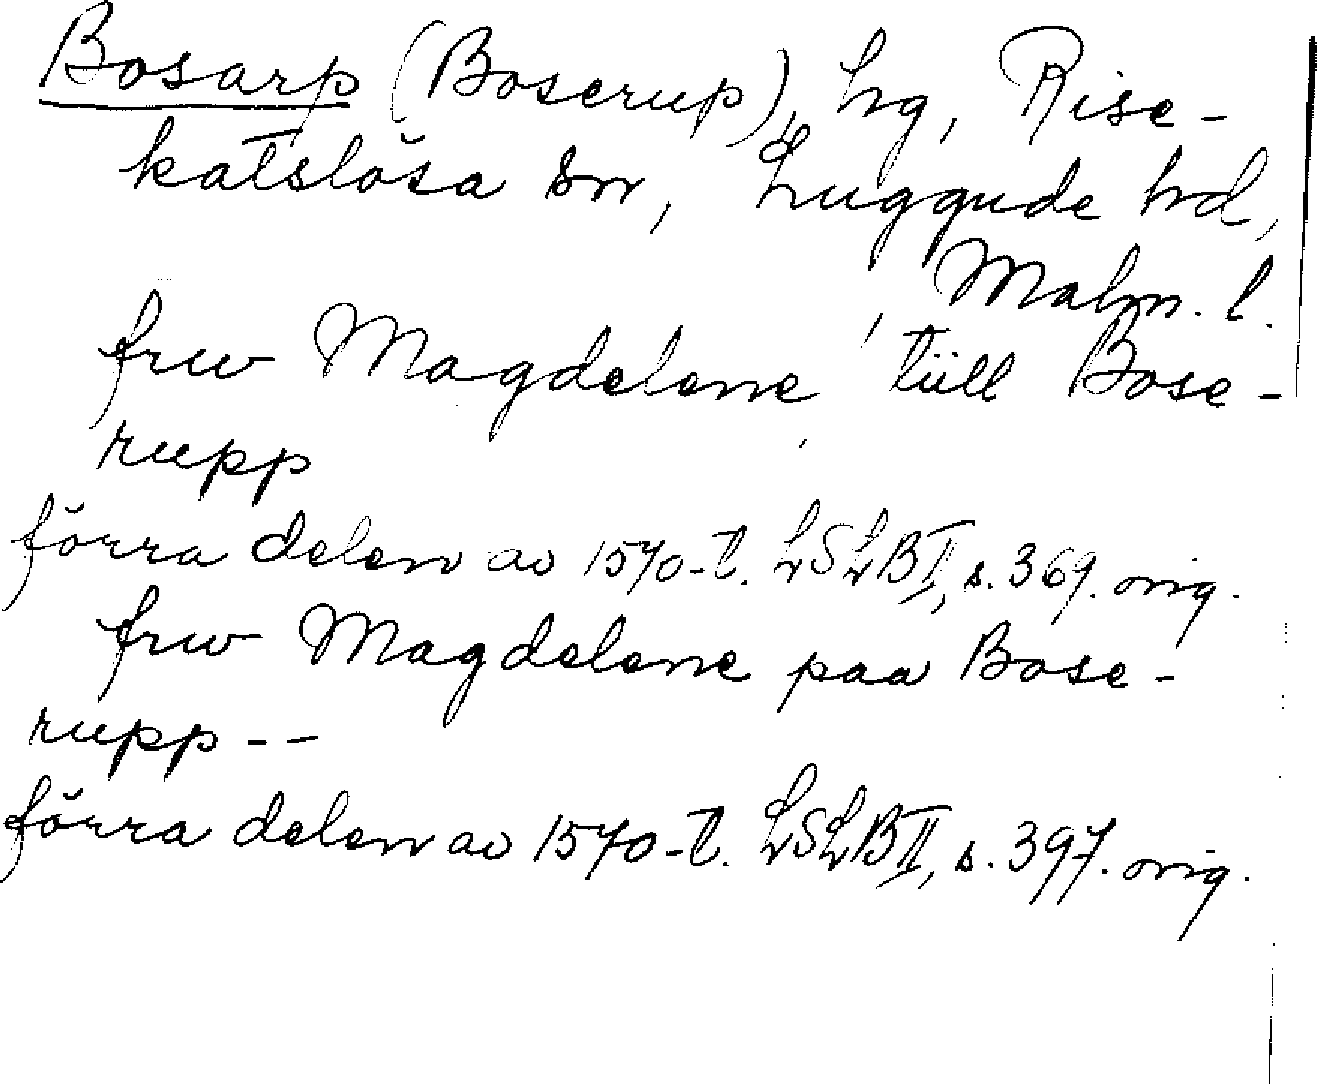 Bosarp (Boserup), hg, Rise-
katslösa sn, Luggude hd,
Malm. l.
frw Magdelene tüll Bose-
rupp
förra delen av 1570-t. LSLB II, s. 369. orig.
frw Magdelene paa Bose-
rupp - -
förra delen av 1570-t. LSLB II, s. 397. orig.